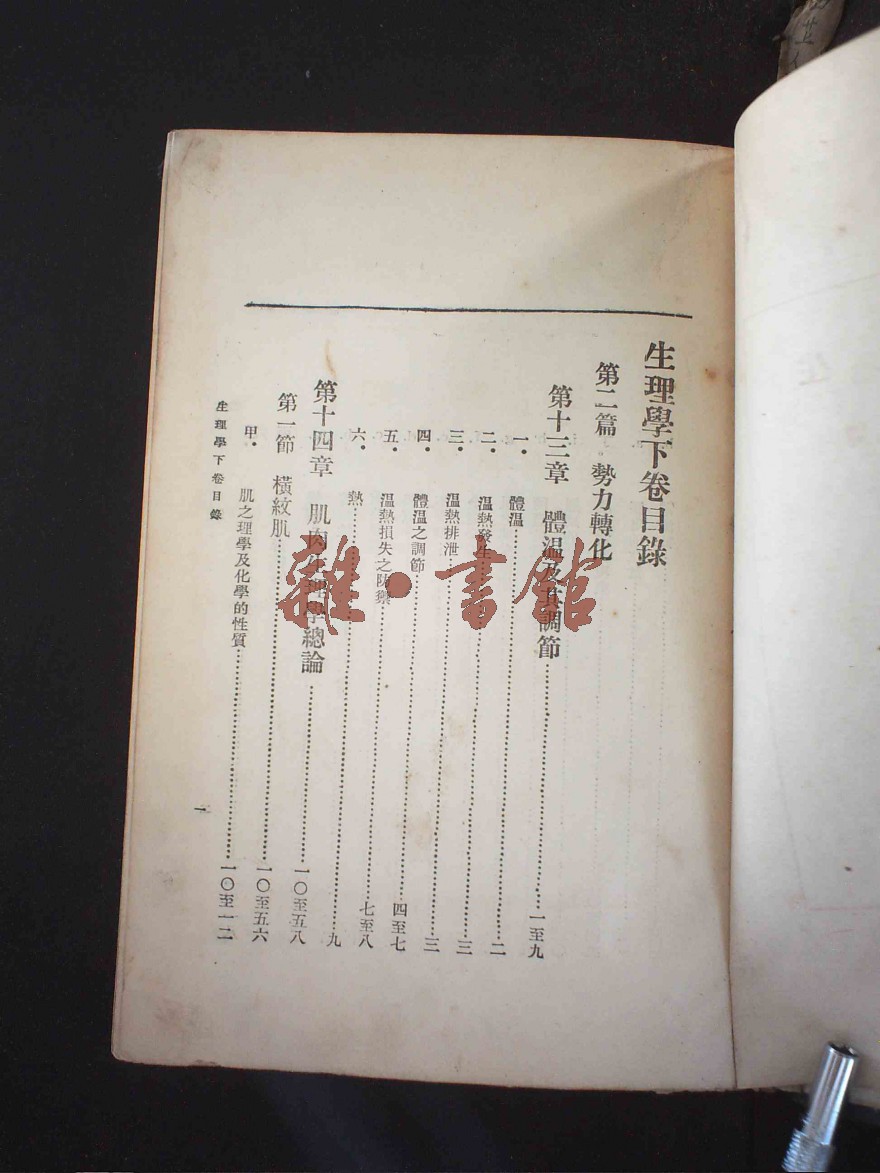 生理學下卷目錄
第二篇 勢力轉化
第十三章 體溫及其調節……一至九
一. 體溫……二
二. 溫熱發生……三
三. 溫熱排泄……三
四. 體溫之調節……四至七
五. 溫熱損失之防禦……七至八
六. 熱……九
第十四章 肌肉生理學總論……一〇至五八
第一節 橫紋肌……一〇至五六
甲. 肌之理學及化學的性質……一〇至一二
生理學下卷目錄 一
雜·書館